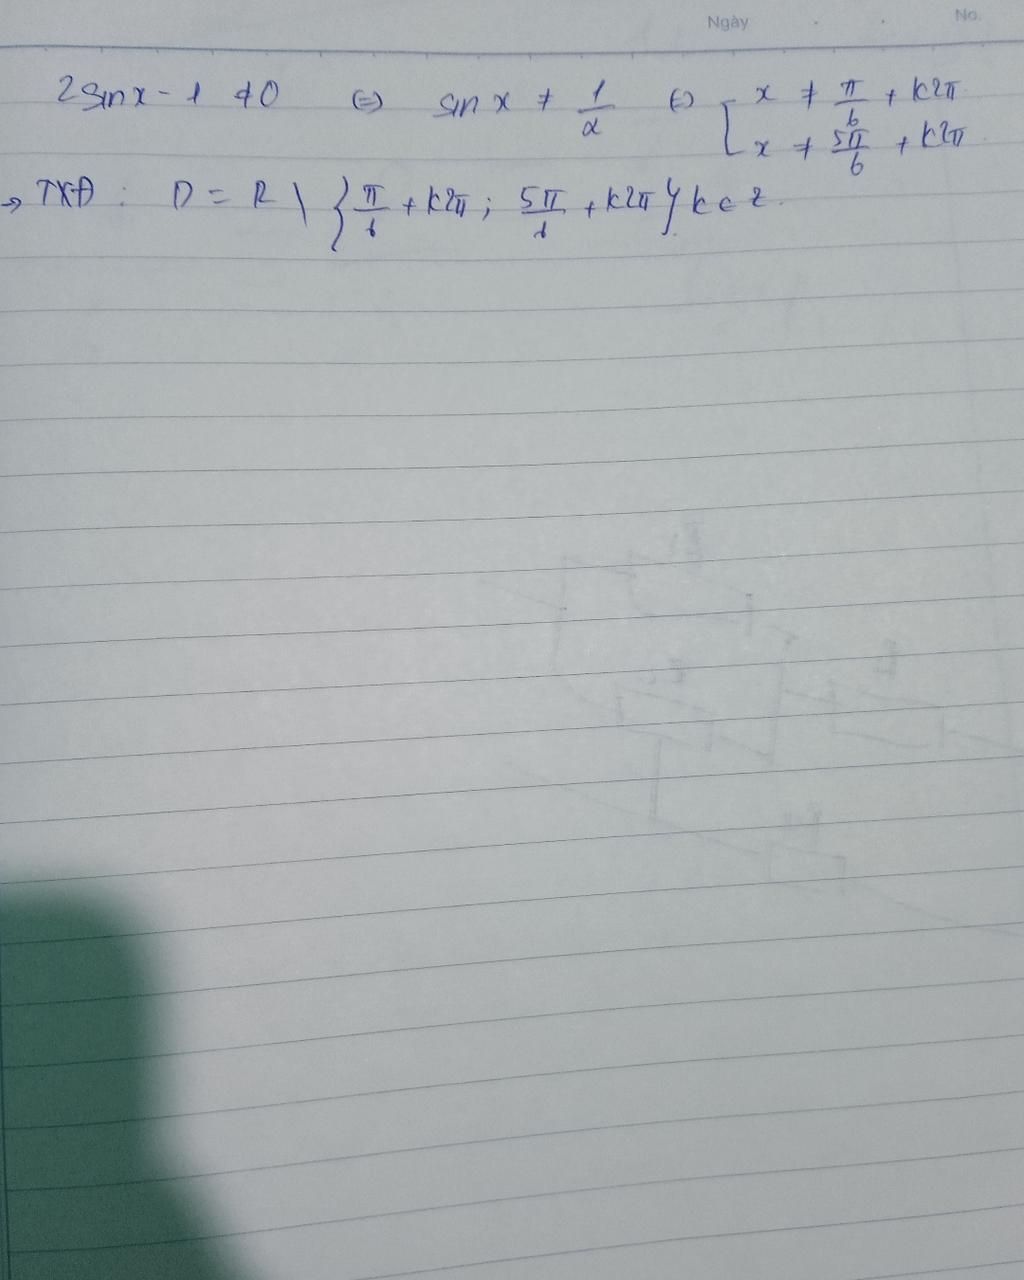 Ngày No.
2sinx - 1 ≠ 0 ⇔ sin x ≠ 1/2 ⇔ [ x ≠ π/6 + k2π
x ≠ 5π/6 + k2π
→ TXĐ : D = R \ { π/6 + k2π ; 5π/6 + k2π } k ∈ Z.